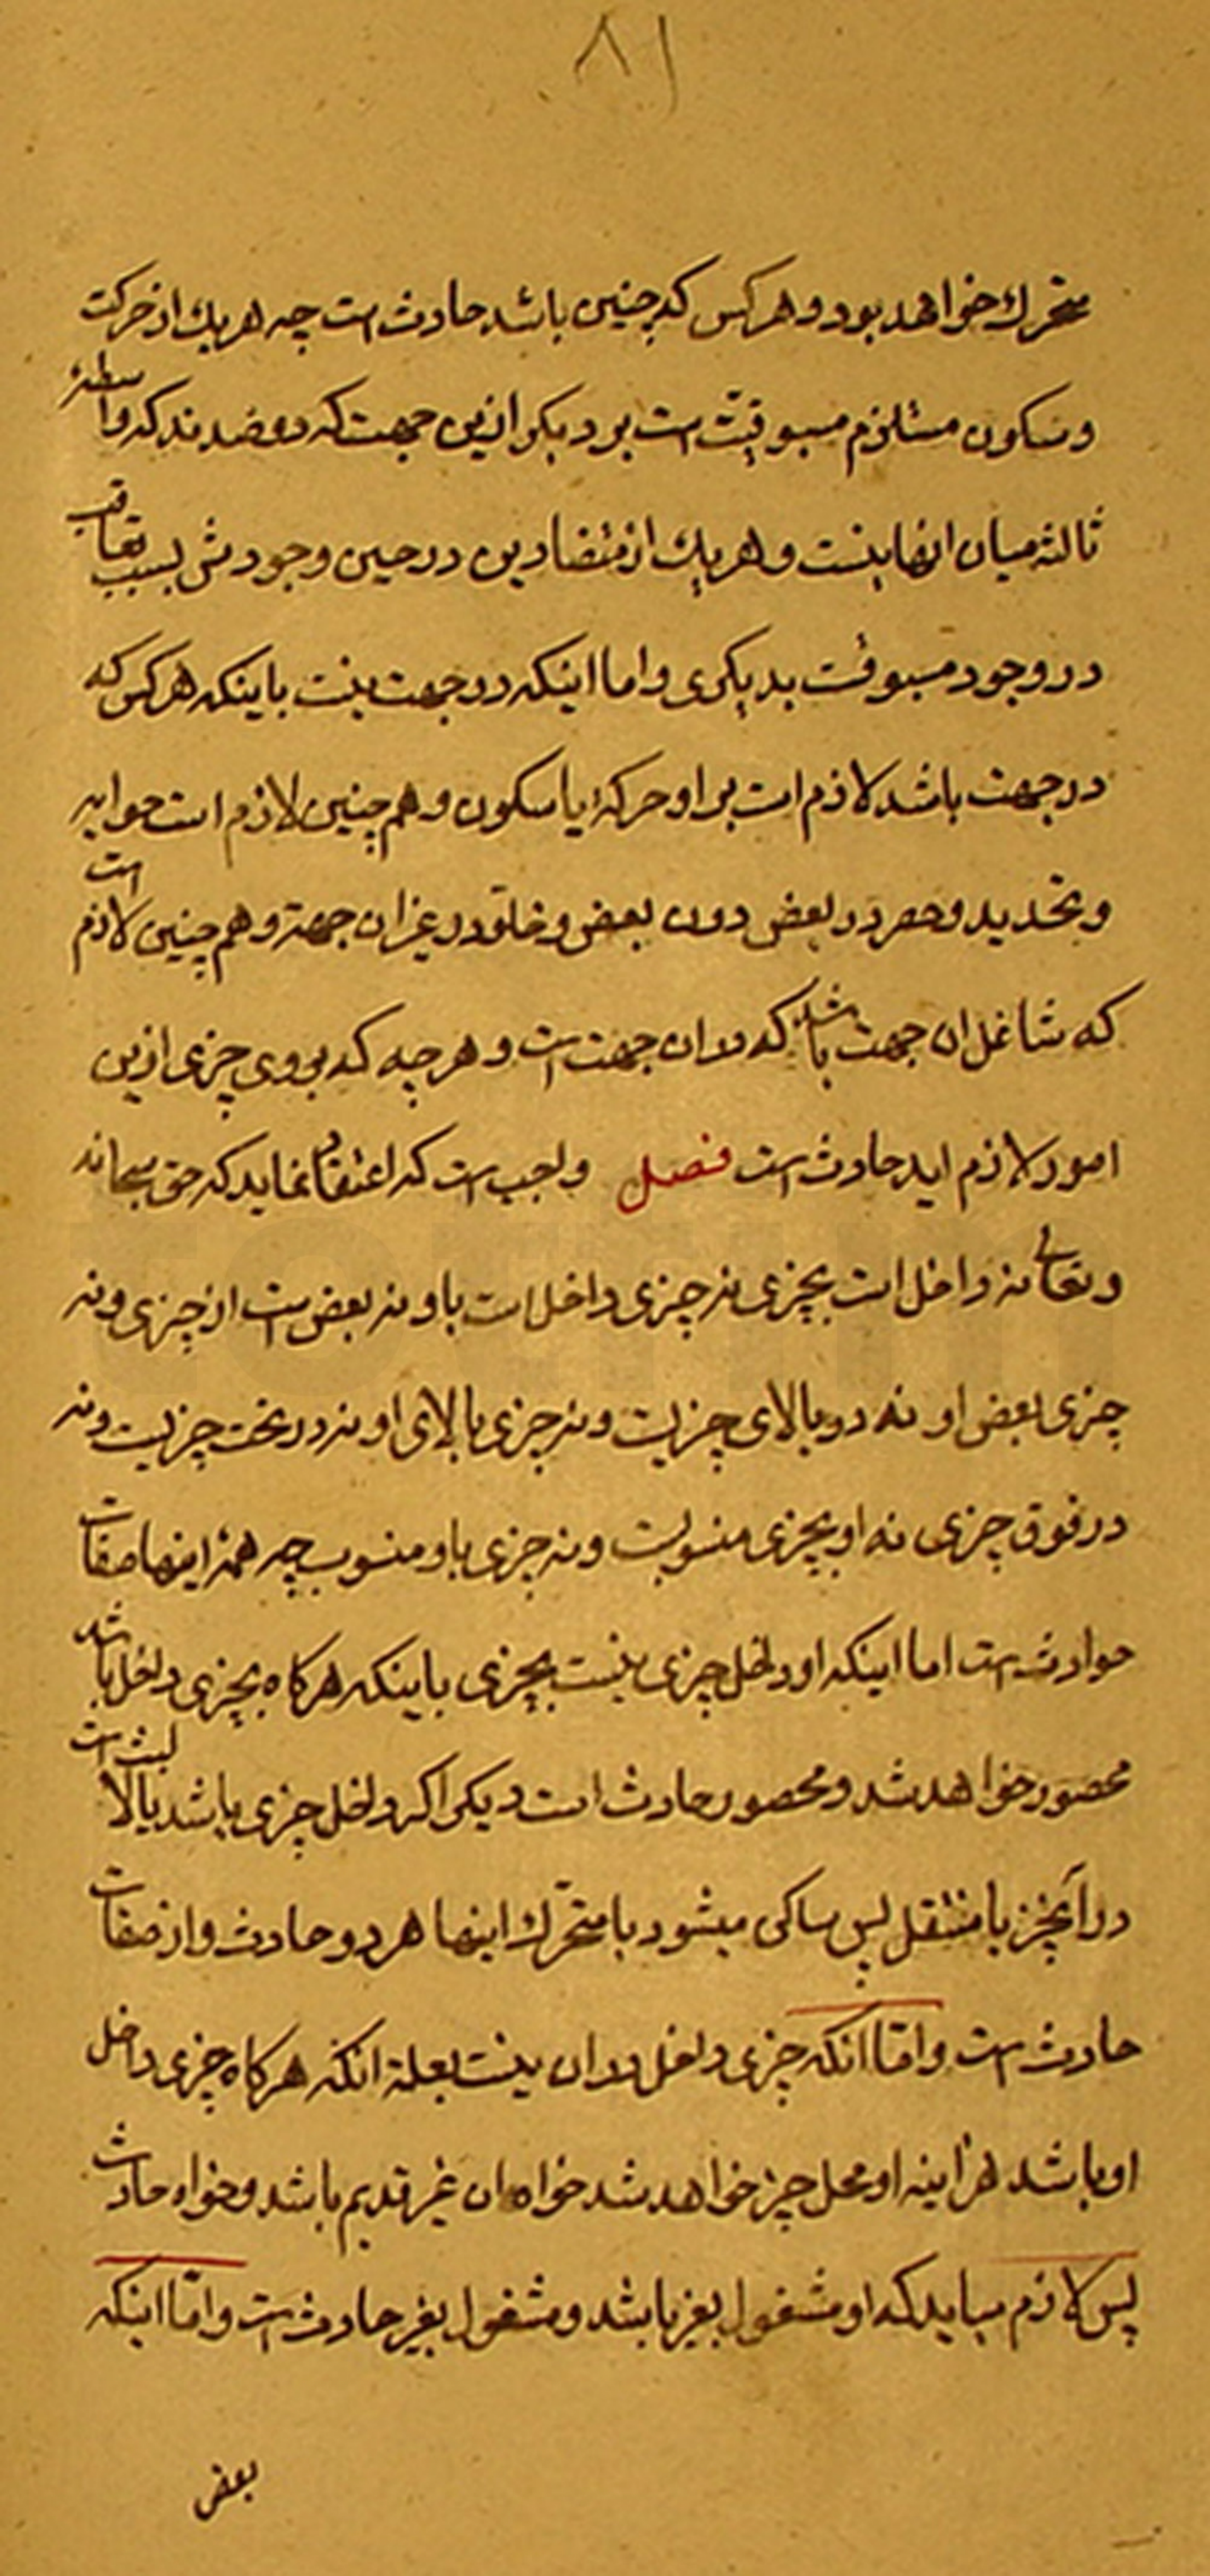 ۸۱
متحرك خواهد بود و هر کس که چنین باشد حادث است چه هر يك از حرکت
و سکون مستلزم مسبوقیّت است بر دیکر ازین جهت که دو ضدند که واسطهٔ
ثالثه میان انها نیست و هر يك از متضادین در حین وجودش بسبب تعاقب
در وجود مسبوقست بدیکری و اما اینکه در جهت نیست باینکه هر کس که
در جهت باشد لازم است بر او حرکة یا سکون و هم چنین لازم است
و تحدید و حصر در بعض دون بعض و خلو در غیر ان جهة و هم چنین لازم است
که شاغل ان جهت باشد که در ان جهت است و هر چه که بر وی چیزی ازین
امور لازم اید حادث است فصل واجب است که اعتقاد نماید که حق سبحانه
و تعالی نه داخل است بچیزی نه چیزی داخل است باو نه بعض است از چیزی و نه
چیزی بعض او نه در بالای چیزیست و نه چیزی بالای او نه در تحت چیزیست و نه
در فوق چیزی نه او بچیزی منسوبست و نه چیزی باو منسوب چه همهٔ اینها صفات
حوادث است اما اینکه او داخل چیزی نیست بچیزی باینکه هر کاه بچیزی داخل باشد
محصور خواهد شد و محصور حادث است دیکر اکر داخل چیزی باشد یا لابث است
در آنچیز یا منتقل پس ساکن میشود یا متحرّك اینها هر دو حادث و از صفات
حادث است و امّا آنکه چیزی داخل در ان نیست بعلة انکه هر کاه چیزی داخل
او باشد هر اینه او محل چیز خواهد شد خواه ان غیر قدیم باشد و خواه حادث
پس لازم میاید که او مشغول بغیر باشد و مشغول بغیر حادث است و امّا اینکه
بعض